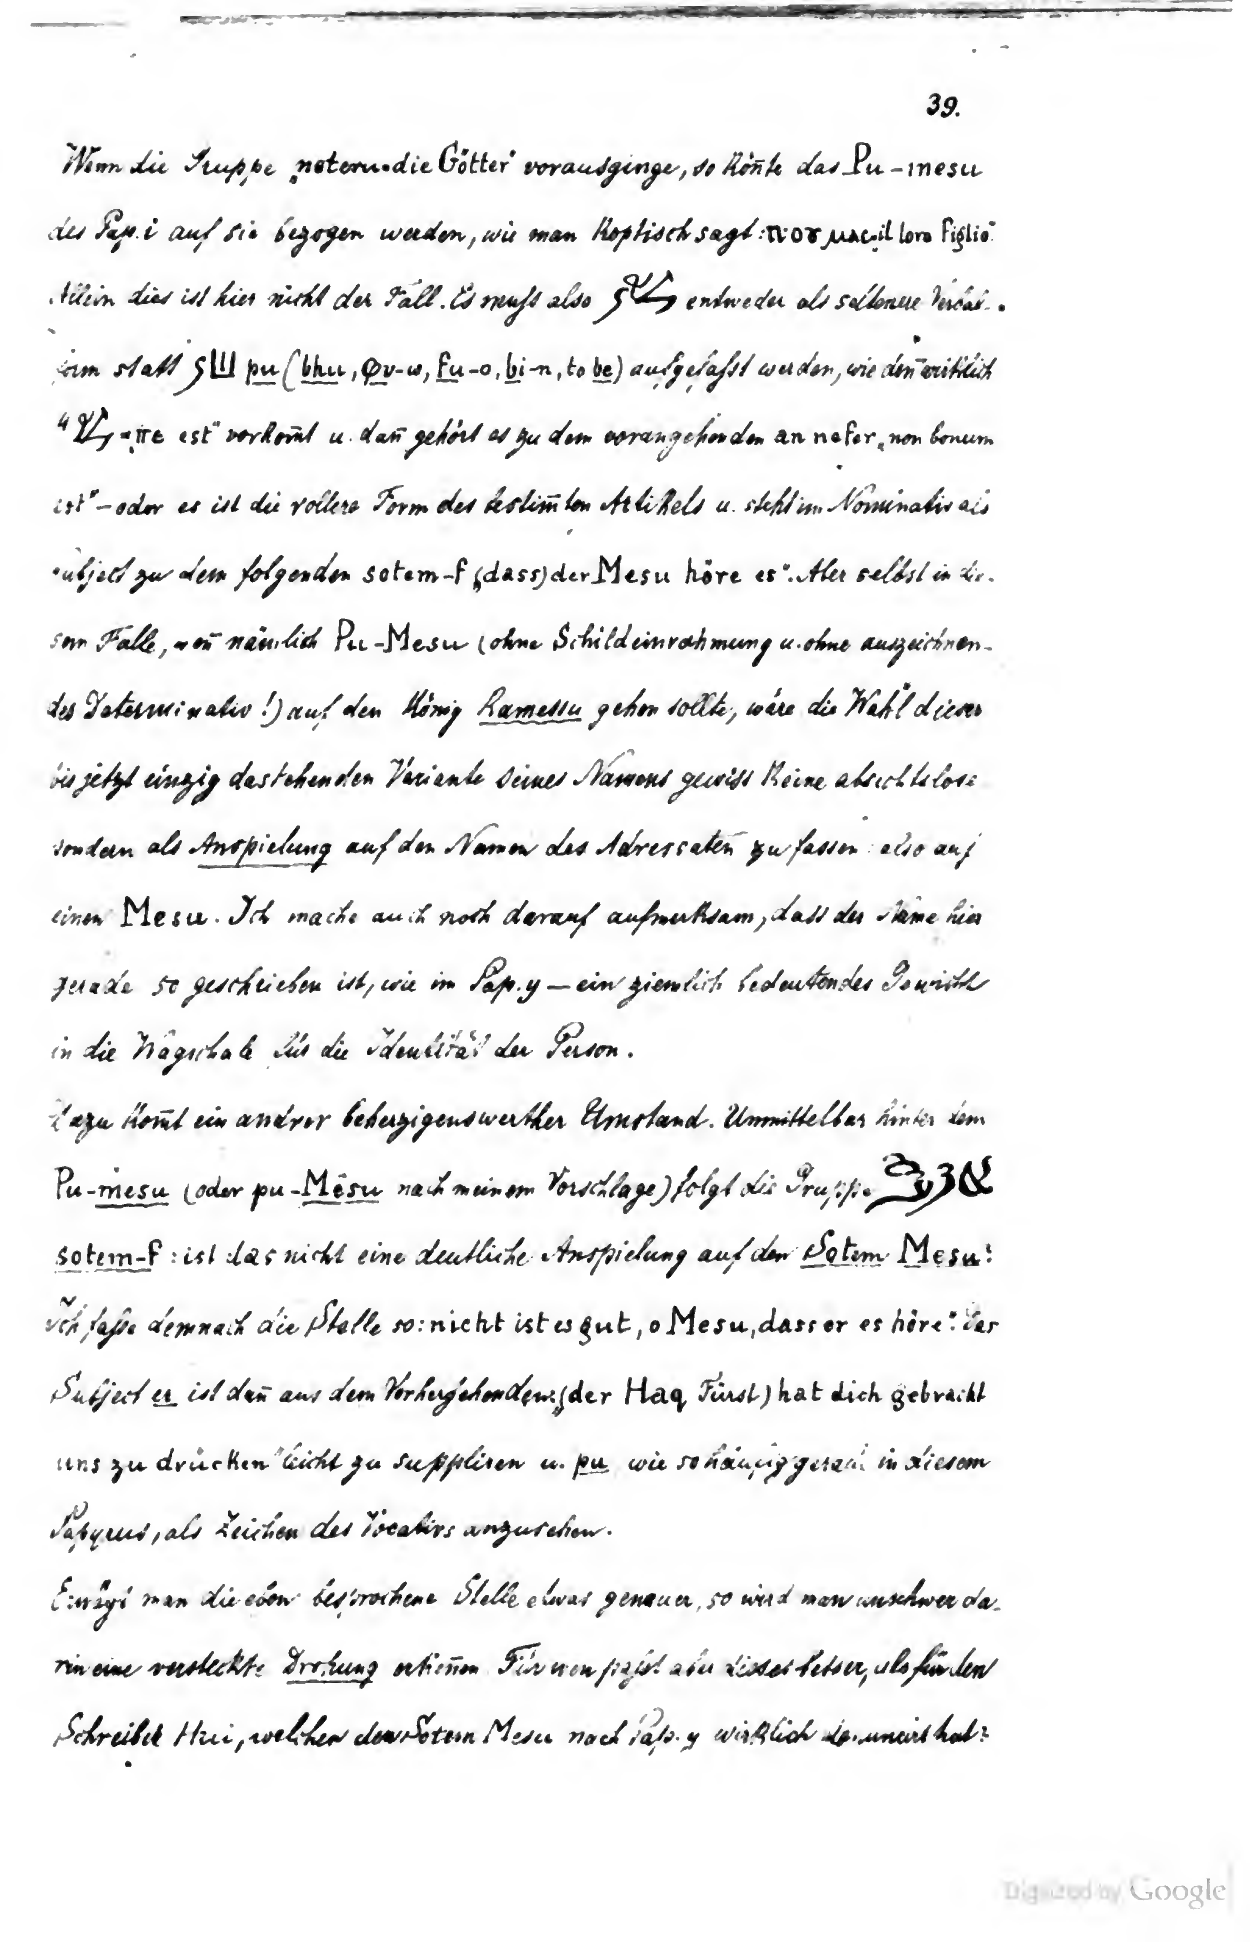 39.
Wenn die Gruppe „noteru=die Götter“ vorausginge, so kon̄te das Pu-mesu
des Pap. i auf sie bezogen werden, wie man koptisch sagt: il loro figlio
Allein dies ist hier nicht der Fall. Es muſs also entweder als seltenere Verbal-
form statt pu (bhu, φυ-ω, fu-o, bi-n, to be) aufgefaſst werden, wie den̄ wirklich
„ =πε est“ vorkom̄t u. dan̄ gehört es zu dem vorangehenden an nefer „non bonum
est“ – oder es ist die vollere Form des bestim̄ten Artikels u. steht im Nominativ als
Subject zu dem folgenden sotem-f „(dass) der Mesu höre es“. Aber selbst in die-
sem Falle, wen̄ nämlich Pu-Mesu (ohne Schildeinrahmung u. ohne auszeichnen-
des Determinativ!) auf den König Ramessu gehen sollte, wäre die Wahl dieser
bis jetzt einzig dastehenden Variante seines Namens gewiss keine absichtslose
sondern als Anspielung auf den Namen des Adressaten zu fassen: also auf
einen Mesu. Ich mache auch noch darauf aufmerksam, dass der Name hier
gerade so geschrieben ist, wie im Pap. y – ein ziemlich bedeutendes Gewicht
in die Wagschale für die Identität der Person.
Dazu kom̄t ein andrer beherzigenswerther Umstand. Unmittelbar hinter dem
Pu-mesu (oder pu-Mesu nach meinem Vorschlage) folgt die Gruppe
sotem-f: ist das nicht eine deutliche Anspielung auf den Sotem Mesu?
Ich faſse demnach die Stelle so: nicht ist es gut, o Mesu, dass er es höre“. Das
Subject er ist dan̄ aus dem Vorhergehenden: „(der Haq Fürst) hat dich gebracht
uns zu drücken“ leicht zu suppliren u. pu, wie so häufig gerade in diesem
Papyrus, als Zeichen des Vocativs anzusehen.
Erwägt man die eben besprochene Stelle etwas genauer, so wird man unschwer da-
rin eine versteckte Drohung erken̄en. Für wen paſst aber dieses besser, als für den
Schreiber Hui, welcher den Sotem Mesu nach Pap. y wirklich denuncirt hat?
Digitized by Google